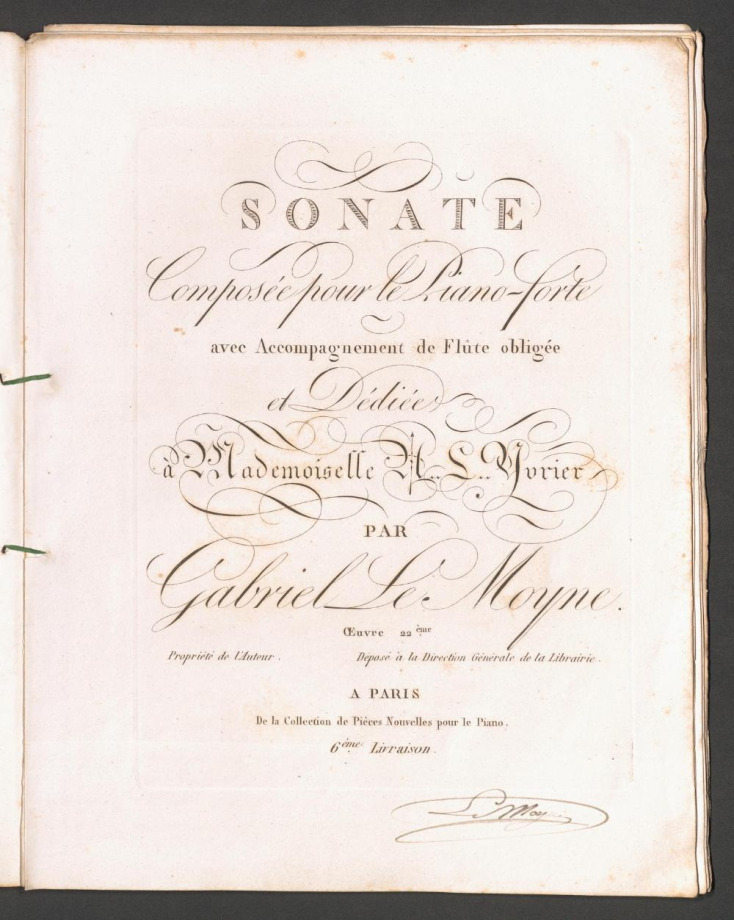 SONATE
Composée pour le Piano-forte
avec Accompagnement de Flûte obligée
et Dédiée
à Mademoiselle A.. L.. Yvrier
PAR
Gabriel Le Moyne.
Œuvre 22ème
Propriété de l'Auteur. Déposé à la Direction Générale de la Librairie.
A PARIS
De la Collection de Pièces Nouvelles pour le Piano.
6ème Livraison.
Le Moyne